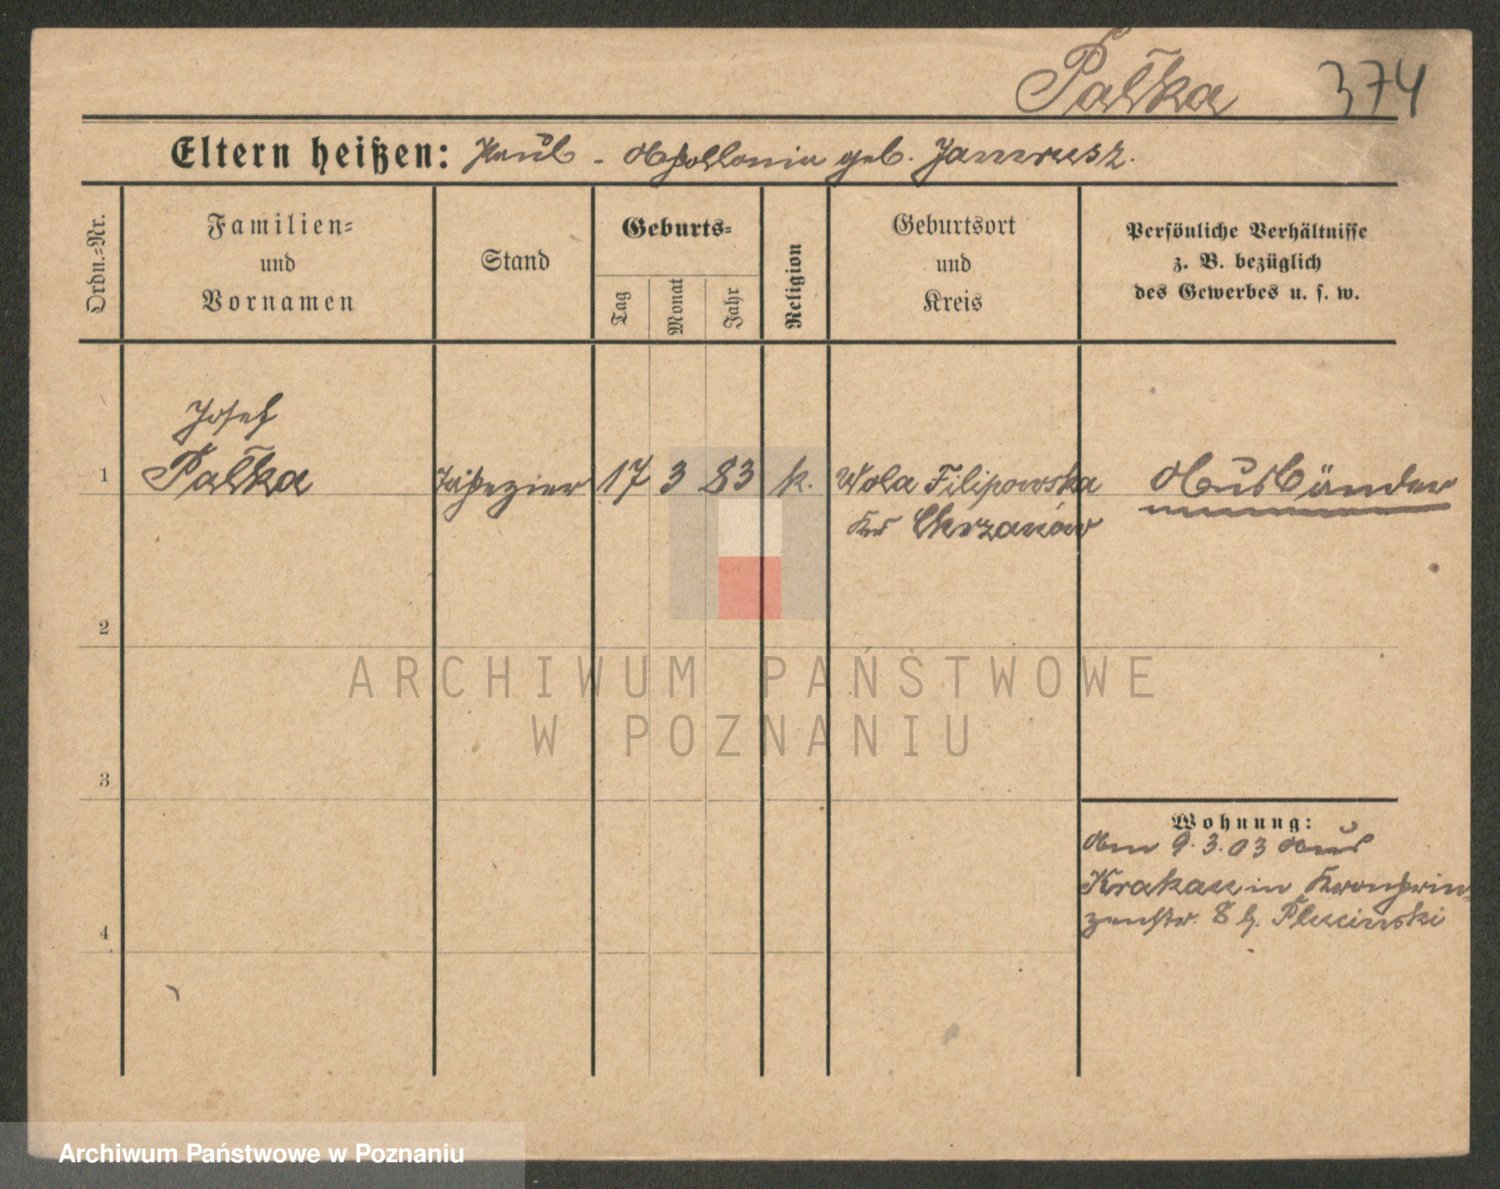 Pałka 374
Eltern heißen: Paul - Apollonia geb. Jamrusz.
Ordn.-Nr.
Familien-
und
Vornamen
Stand
Geburts-
Tag
Monat
Jahr
Religion
Geburtsort
und
Kreis
Persönliche Verhältnisse
z. B. bezüglich
des Gewerbes u. s. w.
Josef
1 Pałka Tapezier 17 3 83 k. Wola Filipowska Ausländer
Kr Chrzanów
2
ARCHIWUM PAŃSTWOWE
W POZNANIU
3
Wohnung:
Am 9.3.03 aus
Krakau in Kronprin-
zenstr. 8 b. Plucinski
4
Archiwum Państwowe w Poznaniu